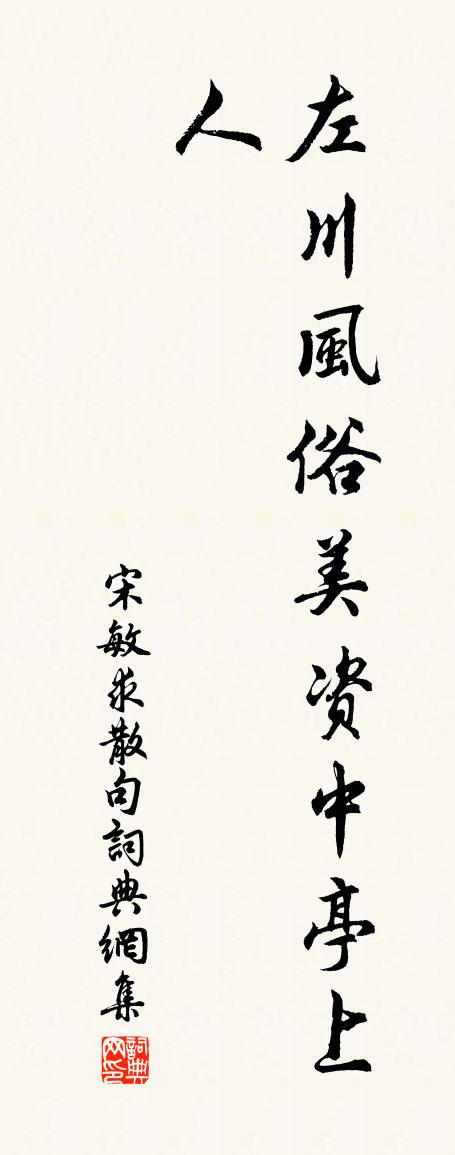 左川風俗美資中亭上
人
宋敏求散句詞典網集
詞典网印